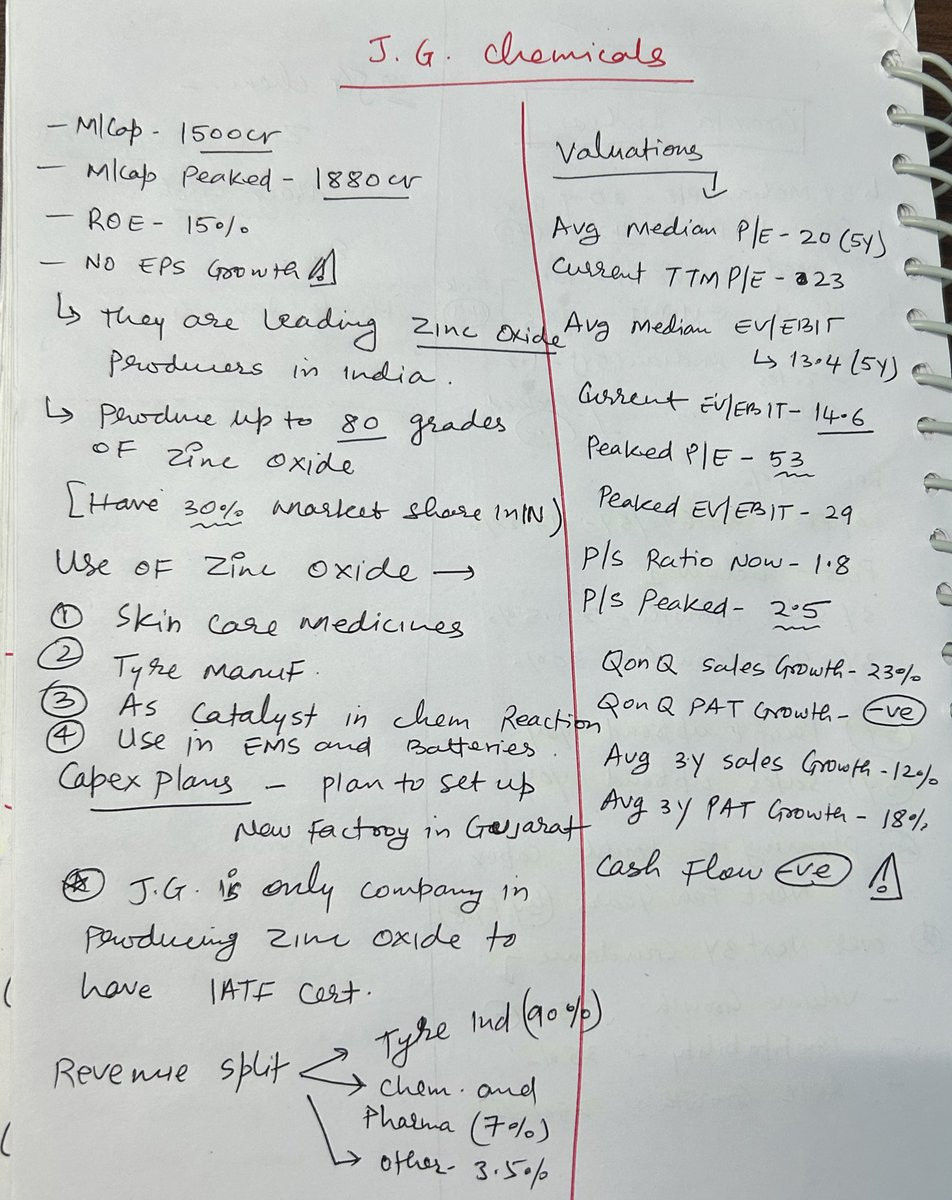 J.G. chemicals
- M/Cap - 1500cr
- M/Cap Peaked - 1880cr
- ROE - 15%
- NO EPS Growth
↳ They are leading Zinc Oxide
Producers in india.
↳ Produce up to 80 grades
OF Zinc Oxide
[Have 30% market share in IN)
Use OF Zinc Oxide →
① Skin care medicines
② Tyre Manuf.
③ As Catalyst in chem Reaction
④ Use in EMS and Batteries.
Capex Plans - plan to set up
New Factroy in Gujarat
J.G. is only company in
producing Zinc Oxide to
have IATF cert.
Revenue split
→ Tyre Ind (90%)
→ chem. and
Pharma (7%)
→ other- 3.5%
Valuations
↓
Avg median P/E - 20 (5Y)
Current TTM P/E - 23
Avg Median EV/EBIT
↳ 13.4 (5Y)
Current EV/EBIT - 14.6
Peaked P/E - 53
Peaked EV/EBIT - 29
P/S Ratio Now - 1.8
P/S Peaked - 2.5
QonQ sales Growth - 23%
QonQ PAT Growth - -ve
Avg 3.y sales Growth - 12%
Avg 3y PAT Growth - 18%
Cash Flow -ve !